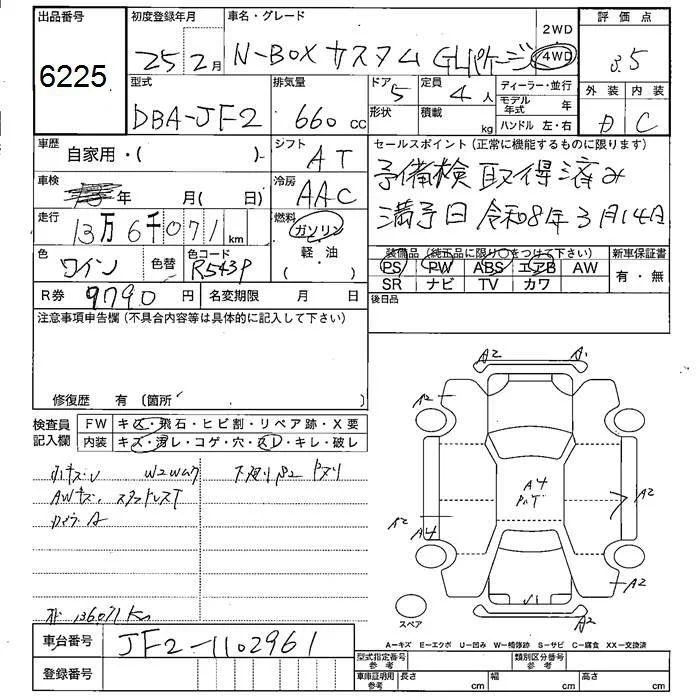 出品番号
6225
初度登録年月
25年2月
車名・グレード
N-BOX カスタム GLパケージ
2WD
4WD
評価点
3.5
外装 内装
D C
型式
DBA-JF2
排気量
660 cc
ドア 5
形状
定員 4人
積載 kg
ディーラー・並行
モデル年式 年
ハンドル 左・右
車歴
自家用・( )
シフト
AT
セールスポイント(正常に機能するものに限ります)
予備検取得済み
満予日 令和8年3月14日
車検
年 月( 日)
冷房
AAC
走行
13万6千071 km
燃料
ガソリン
軽・油
色
ワイン
色替
色コード
R543P
装備品(純正品に限り○をつけて下さい)
PS PW ABS エアB AW
SR ナビ TV カワ
新車保証書
有・無
R券 9790円
名変期限 月 日
後日品
注意事項申告欄(不具合内容等は具体的に記入して下さい)
修復歴 有 〔箇所
検査員記入欄
FW キズ・飛石・ヒビ割・リペア跡・X要
内装 キズ・汚レ・コゲ・穴・スレ・キレ・破レ
AWキズ、スタッドレスT
A2 A1
A2
A4
A2
A2 A4
A2
A2
スペア
136071Km
車台番号
JF2-1102961
登録番号
A=キズ E=エクボ U=凹み W=補修跡 S=サビ C=腐食 XX=交換済
型式指定番号 参考
類別区分番号 参考
車庫証明用 参考
長さ cm 幅 cm 高さ cm